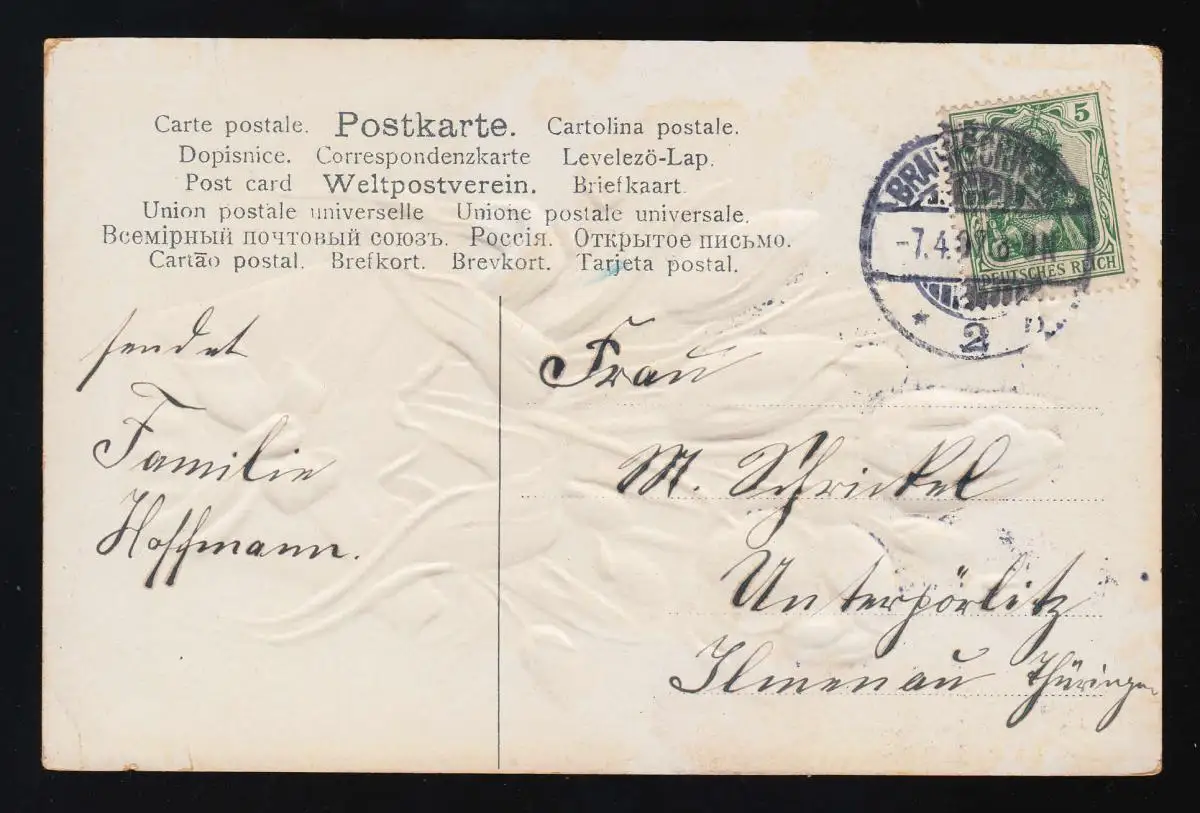 Carte postale. Postkarte. Cartolina postale.
Dopisnice. Correspondenzkarte Levelezö-Lap.
Post card Weltpostverein. Briefkaart.
Union postale universelle Unione postale universale.
Всемірный почтовый союзъ. Россія. Открытое письмо.
Cartāo postal. Brefkort. Brevkort. Tarjeta postal.
5
DEUTSCHES REICH
-7.4.07
* 2
sendet
Familie
Hoffmann.
Frau
M. Schrickel
Unterpörlitz
Ilmenau Thüringen